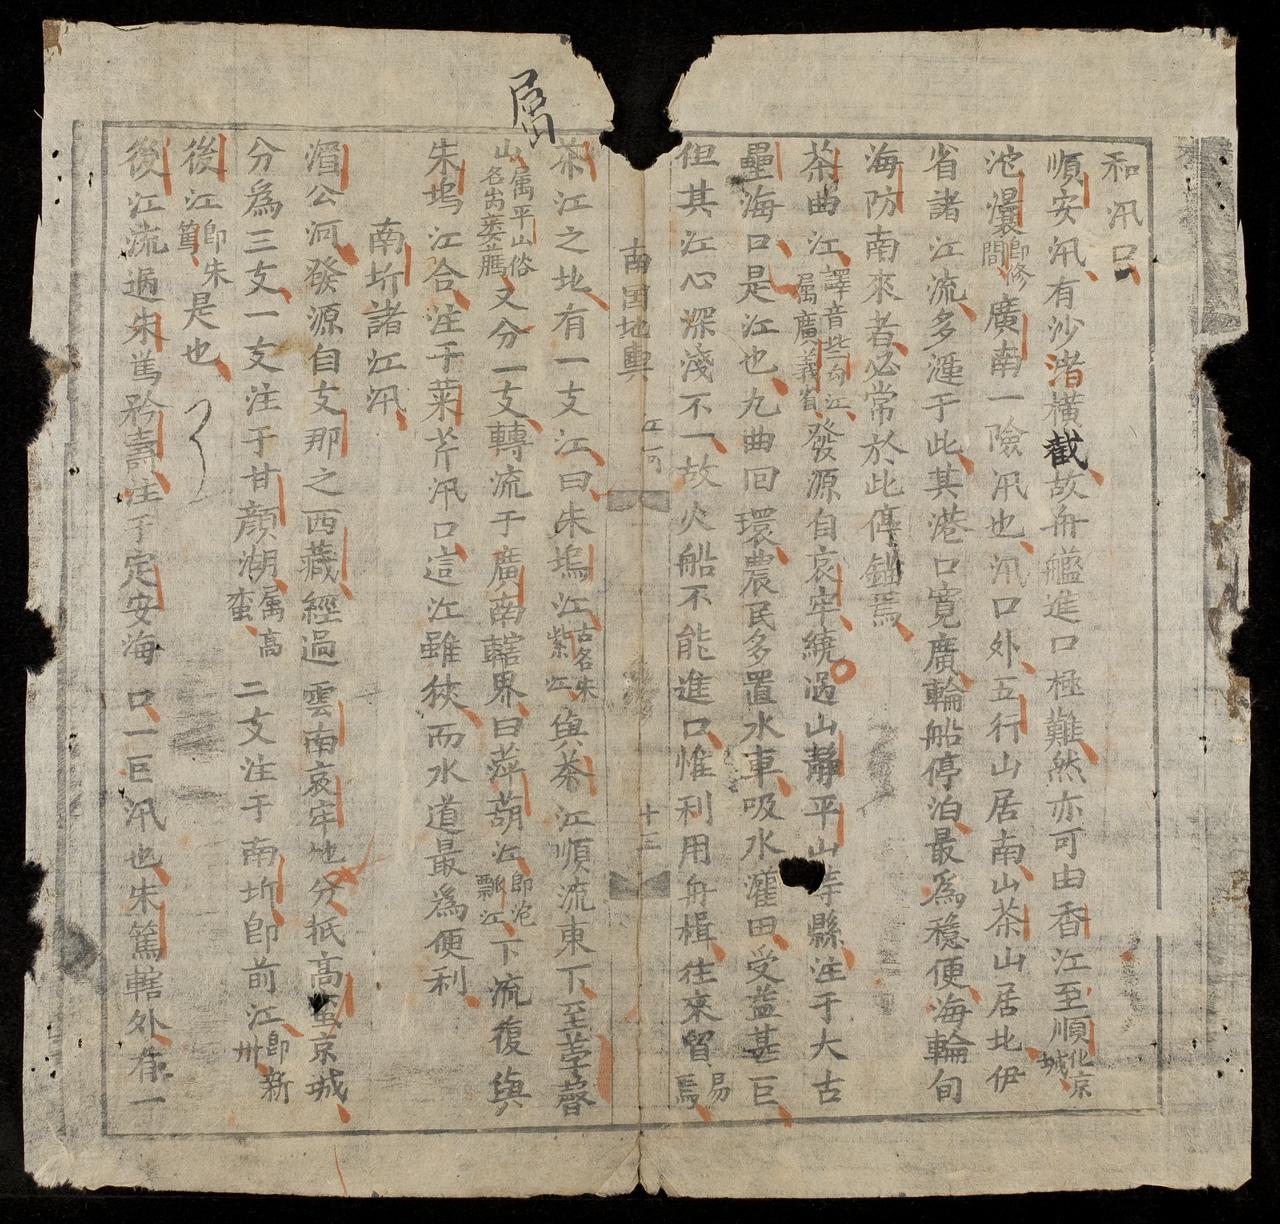 屬
和汛口
順安汛有沙渚橫截故舟艦進口極難然亦可由香江至順化京城
沱㶞即修間廣南一險汛也汛口外五行山居南山茶山居北伊
省諸江流多滙于此其港口寬廣輪船停泊最爲穩便海輪旬
海防南來者必常於此停錨焉
茶曲江譯音些句江屬廣義省發源自哀牢繞過山靜平山等縣注于大古
壘海口是江也九曲回環農民多置水車吸水灌田受益甚巨
但其江心深淺不一故火船不能進口惟利用舟楫往來貿易焉
南国地輿
江河
十三
茶江之地有一支江曰朱塢江古名朱紫江與茶江順流東下至荸磬
山屬平山俗名岗又分一支轉流于廣南轄界曰萍葫江即沱瓢江下流復與
朱塢江合注于菜芹汛口這江雖狹而水道最爲便利
南圻諸江汛
湄公河發源自支那之西藏經過雲南哀牢地分抵高蛮京城
分爲三支一支注于甘顏湖屬高蛮二支注于南圻即前江即新卅
後江即朱篤是也
後江流過朱篤矜壽注于定安海口一巨汛也朱篤轄外有一